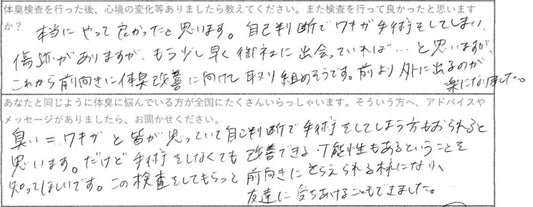 体臭検査を行った後、心境の変化等ありましたら教えてください。また検査を行って良かったと思います
か？
本当にやって良かったと思います。自己判断でワキガ手術をしてしまい、
傷跡がありますが、もう少し早く御社に出会っていれば…と思いますが、
これから前向きに体臭改善に向けて取り組めそうです。前より外に出るのが
楽になりました。
あなたと同じように体臭に悩んでいる方が全国にたくさんいらっしゃいます。そういう方へ、アドバイスや
メッセージがありましたら、お聞かせください。
臭い＝ワキガと皆が思っていて自己判断で手術をしてしまう方もおられると
思います。だけど手術をしなくても改善できる可能性もあるということを
知ってほしいです。この検査をしてもらって前向きにとらえられる様になり、
友達に打ちあけることもできました。